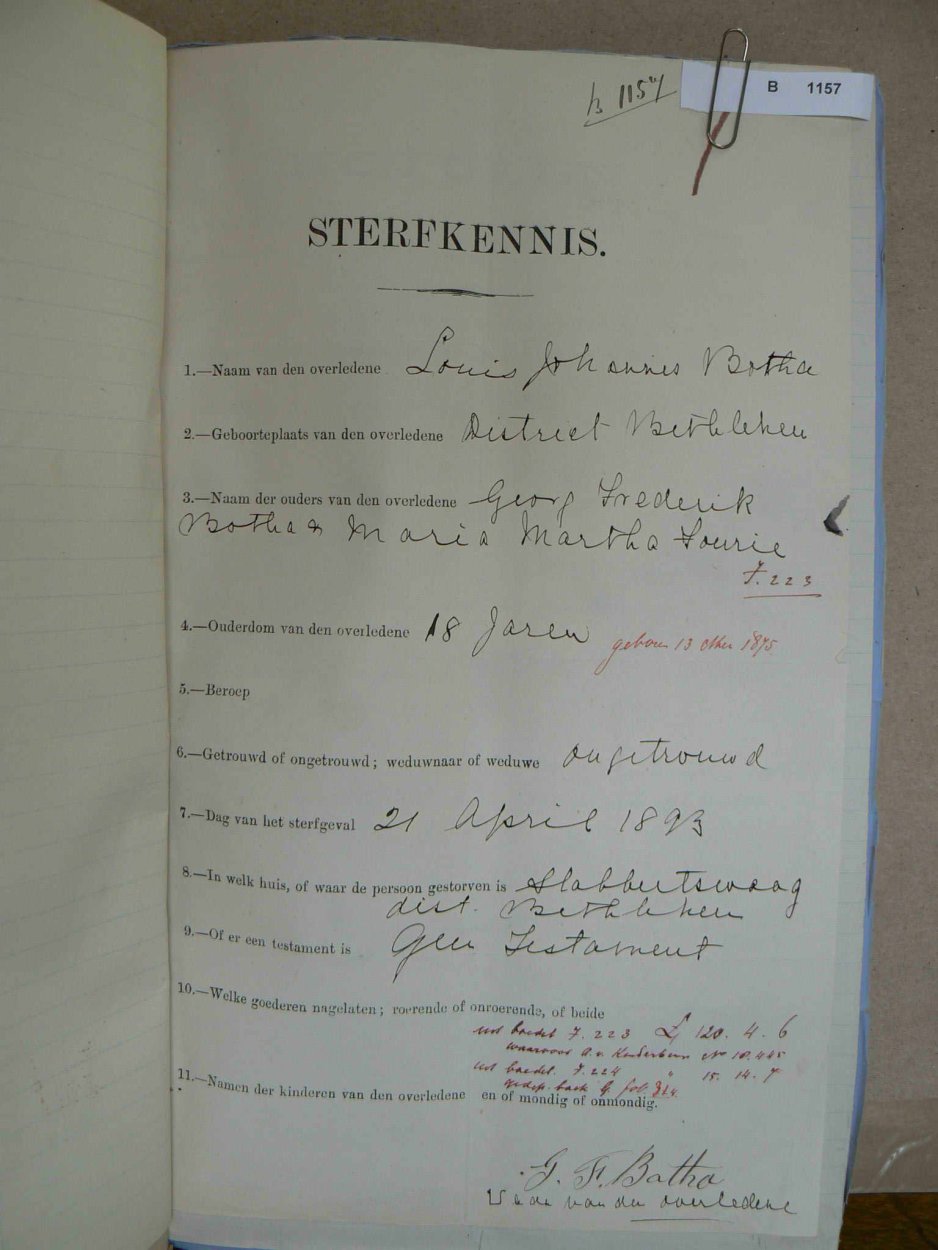 B 1157
B 1157
STERFKENNIS.
1.—Naam van den overledene Louis Johannes Botha
2.—Geboorteplaats van den overledene District Bethlehem
3.—Naam der ouders van den overledene Georg Frederik
Botha & Maria Martha Lourie
F. 223
4.—Ouderdom van den overledene 18 Jaren geboren 13 1875
5.—Beroep
6.—Getrouwd of ongetrouwd; weduwnaar of weduwe ongetrouwd
7.—Dag van het sterfgeval 21 April 1893
8.—In welk huis, of waar de persoon gestorven is Slabbertswaag
dist. Bethlehem
9.—Of er een testament is Geen Testament
10.—Welke goederen nagelaten; roerende of onroerende, of beide
uit boedel F. 223 £ 120. 4. 6
waarvoor No 10.445
uit boedel F. 224 " 15. 14. 7
boek G fol
11.—Namen der kinderen van den overledene en of mondig of onmondig.
G. F. Botha
Vader van den overledene